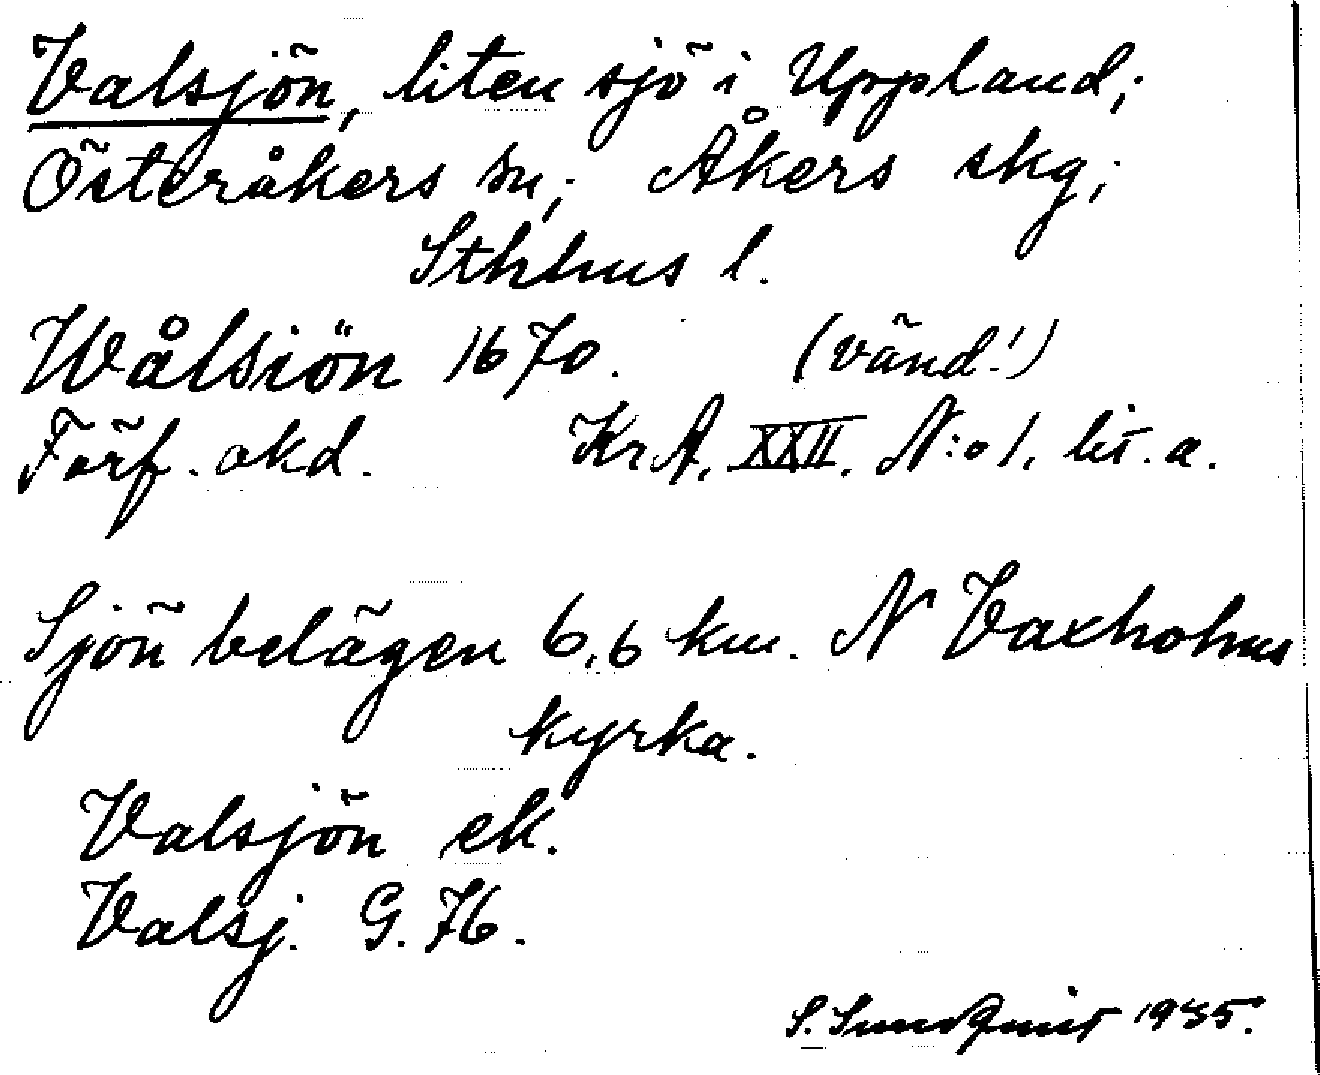 Valsjön, liten sjö i Uppland;
Österåkers sn; Åkers skg;
Sthlms l.
Wålsiön 1670. (vänd!)
Förf. okd. KrA. XXII. N:o 1. lit. a.
Sjön belägen 6,6 km. N Vaxholms
kyrka.
Valsjön ek.
Valsj. G. 76.
S. Sundqvist 1935.